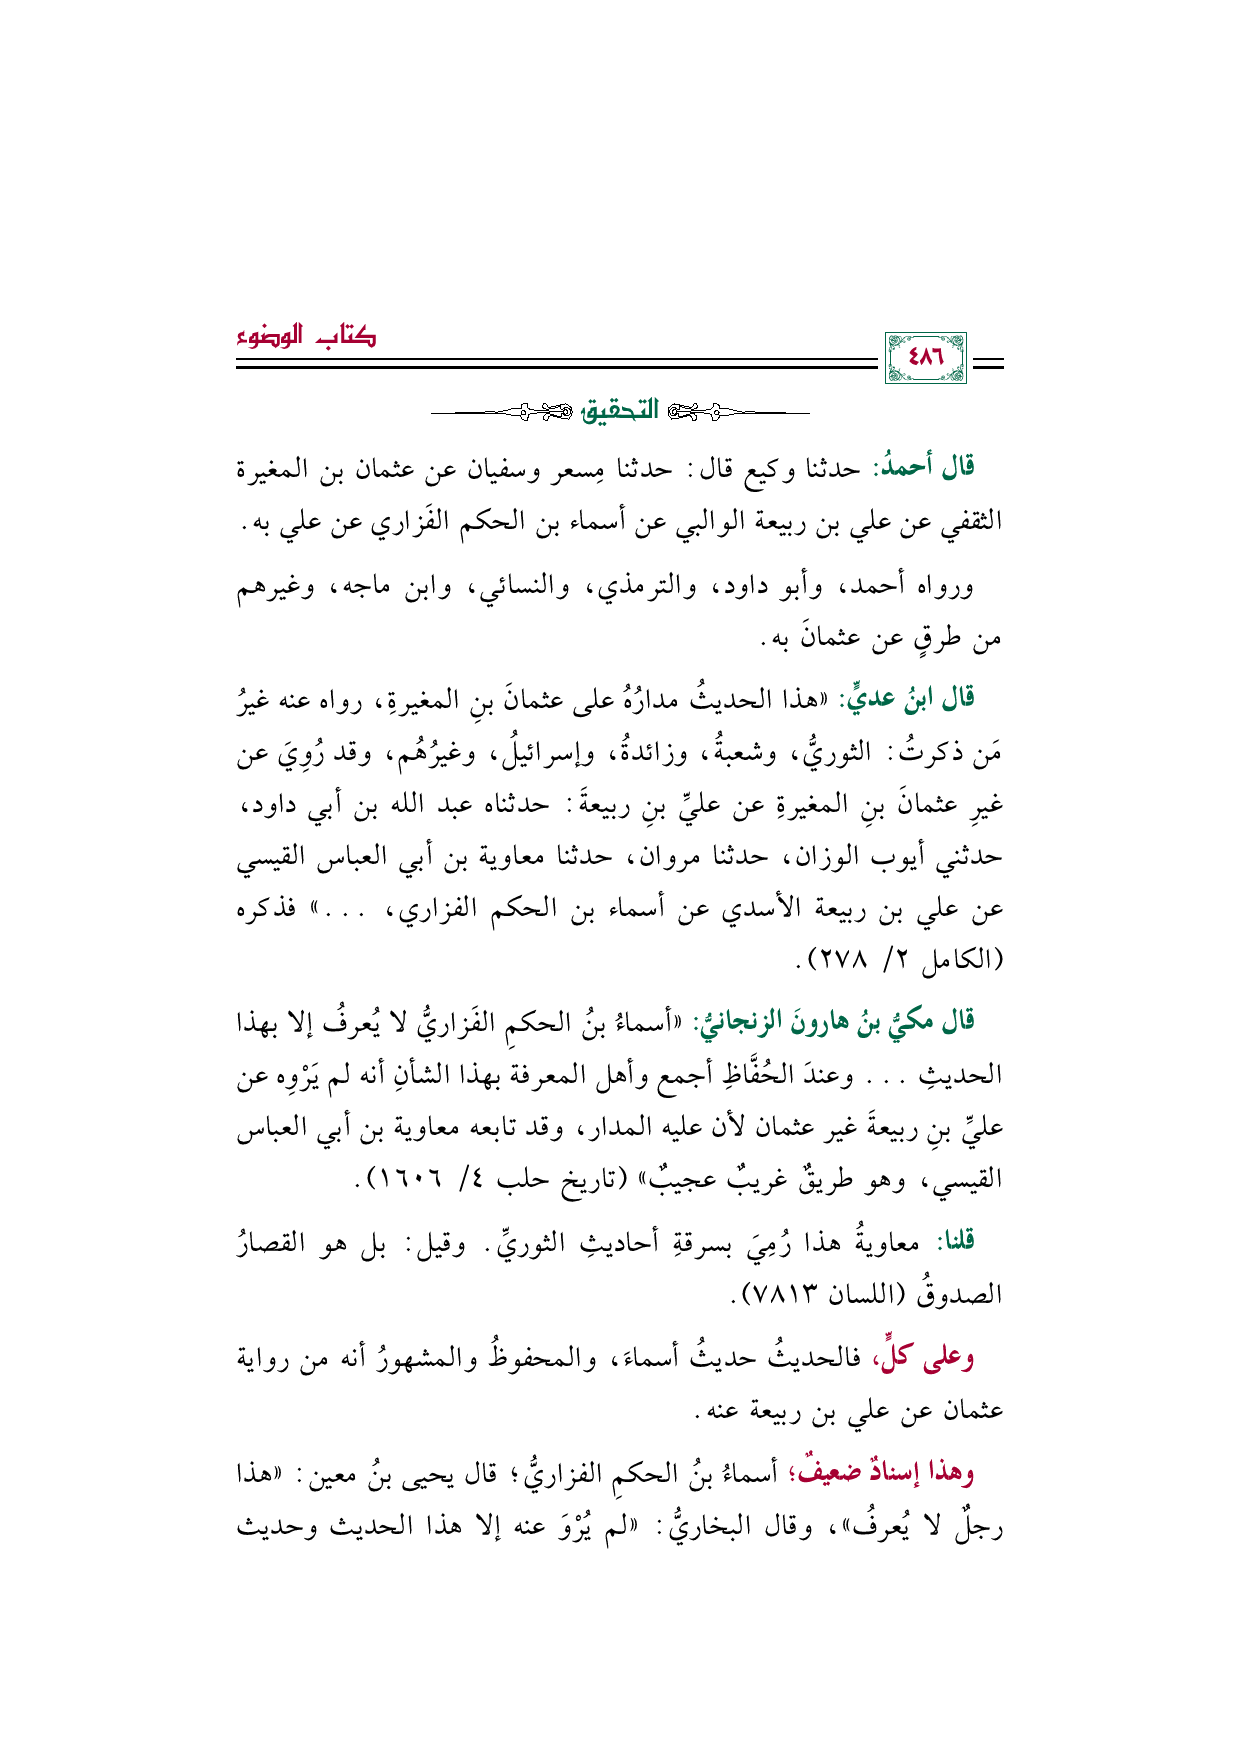 كتاب الوضوء
٤٨٦
التحقيق
قال أحمدُ: حدثنا وكيع قال: حدثنا مِسعر وسفيان عن عثمان بن المغيرة
الثقفي عن علي بن ربيعة الوالبي عن أسماء بن الحكم الفَزاري عن علي به.
ورواه أحمد، وأبو داود، والترمذي، والنسائي، وابن ماجه، وغيرهم
من طرقٍ عن عثمانَ به.
قال ابنُ عديٍّ: «هذا الحديثُ مدارُهُ على عثمانَ بنِ المغيرةِ، رواه عنه غيرُ
مَن ذكرتُ: الثوريُّ، وشعبةُ، وزائدةُ، وإسرائيلُ، وغيرُهُم، وقد رُوِيَ عن
غيرِ عثمانَ بنِ المغيرةِ عن عليِّ بنِ ربيعةَ: حدثناه عبد الله بن أبي داود،
حدثني أيوب الوزان، حدثنا مروان، حدثنا معاوية بن أبي العباس القيسي
عن علي بن ربيعة الأسدي عن أسماء بن الحكم الفزاري، ...» فذكره
(الكامل ٢/ ٢٧٨).
قال مكيُّ بنُ هارونَ الزنجانيُّ: «أسماءُ بنُ الحكمِ الفَزاريُّ لا يُعرفُ إلا بهذا
الحديثِ ... وعندَ الحُفَّاظِ أجمع وأهل المعرفة بهذا الشأنِ أنه لم يَرْوِه عن
عليِّ بنِ ربيعةَ غير عثمان لأن عليه المدار، وقد تابعه معاوية بن أبي العباس
القيسي، وهو طريقٌ غريبٌ عجيبٌ» (تاريخ حلب ٤/ ١٦٠٦).
قلنا: معاويةُ هذا رُمِيَ بسرقةِ أحاديثِ الثوريِّ. وقيل: بل هو القصارُ
الصدوقُ (اللسان ٧٨١٣).
وعلى كلٍّ، فالحديثُ حديثُ أسماءَ، والمحفوظُ والمشهورُ أنه من رواية
عثمان عن علي بن ربيعة عنه.
وهذا إسنادٌ ضعيفٌ؛ أسماءُ بنُ الحكمِ الفزاريُّ؛ قال يحيى بنُ معين: «هذا
رجلٌ لا يُعرفُ»، وقال البخاريُّ: «لم يُرْوَ عنه إلا هذا الحديث وحديث